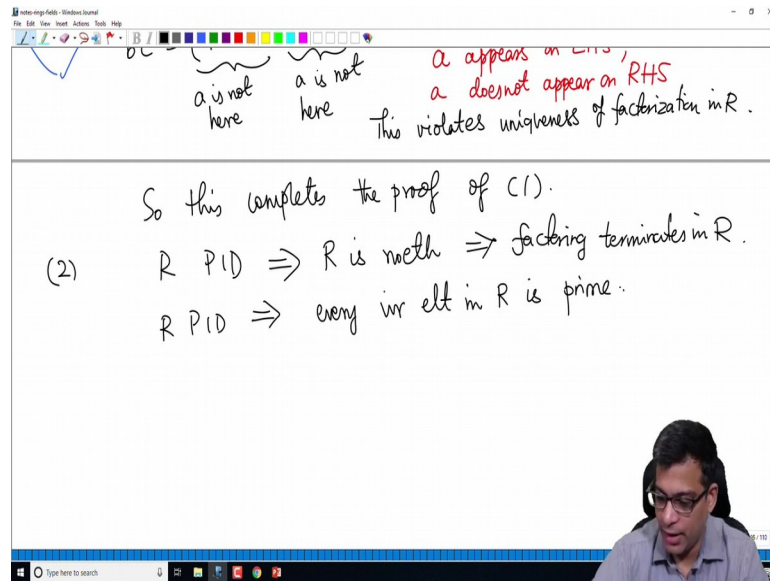 notes-rings-fields - Windows Journal
File Edit View Insert Actions Tools Help
B I
a appears on LHS,
a is not here
a is not here
a doesnot appear on RHS
This violates uniqueness of factorization in R.
So this completes the proof of (1).
(2) R PID ⇒ R is noeth ⇒ factoring terminates in R.
R PID ⇒ every irr elt in R is prime.
Type here to search